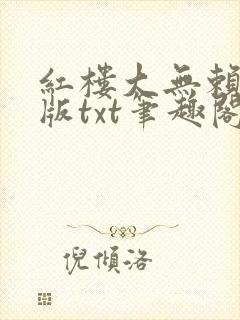 紅樓大無賴
版txt筆趣閣
倪傾洛